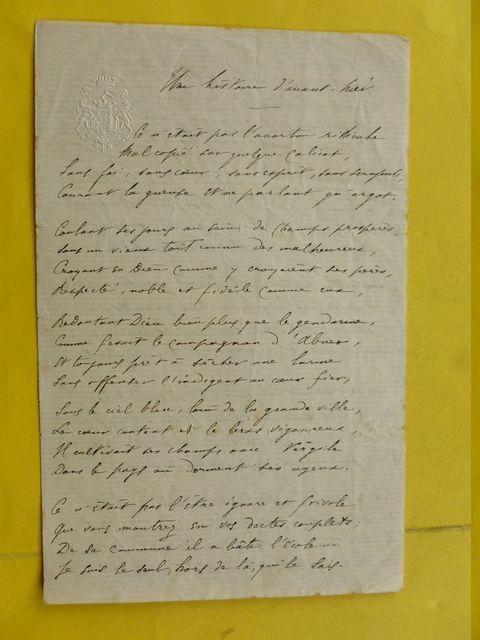 Une histoire d'avant-hier
Ce n'était pas l'avorton ridicule
Mal copié sur quelque calicot,
Sans foi, sans cœur, sans esprit, sans scrupule,
Courant la gueuse et ne parlant qu'argot.
Coulant ses jours au sein de champs prospères,
Sous un vieux toit connu des malheureux,
Croyant en Dieu comme y croyaient ses pères,
Respecté, noble et fidèle comme eux,
Redoutant Dieu bien plus que le gendarme,
Comme faisait le compagnon d'Abner,
Et toujours prêt à sécher une larme
Sans offenser l'indigent au cœur fier,
Sous le ciel bleu, loin de la grande ville,
Le cœur content et le bras vigoureux,
Il cultivait ses champs avec Virgile
Dans le pays où dorment ses ayeux.
Ce n'était pas l'être ignare et frivole
Que vous montrez en vos doctes couplets;
De sa commune il a bâti l'école
Je suis le seul, hors de là, qui le sais.